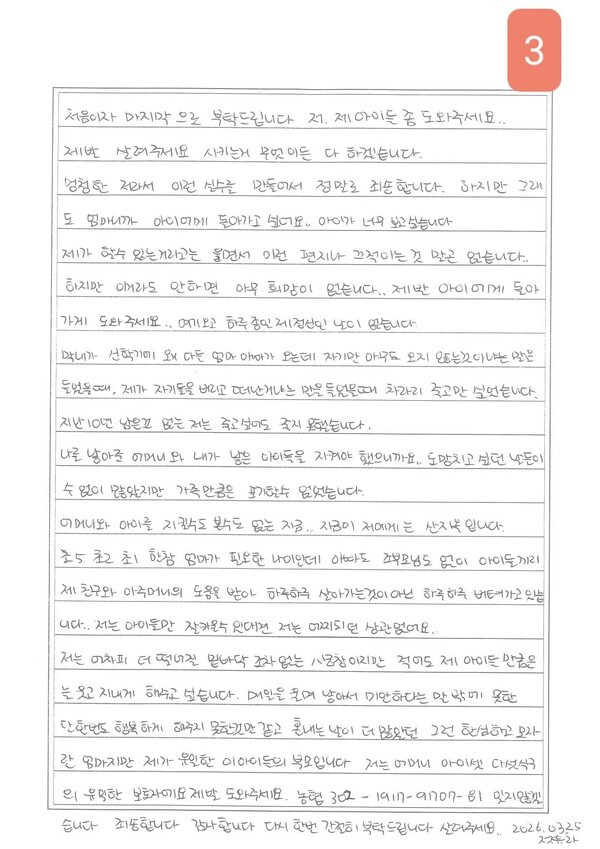 3
처음이자 마지막 으로 부탁드립니다 저. 제 아이들 좀 도와주세요..
제발 살려주세요 시키는거 무엇이든 다 하겠습니다.
멍청한 저라서 이런 실수를 만들어서 정말로 죄송합니다. 하지만 그래
도 엄마니까 아이에게 돌아가고 싶어요.. 아이가 너무 보고싶습니다
제가 할수 있는거라고는 울면서 이런 편지나 끄적이는 것 말곤 없습니다..
하지만 이거라도 안하면 아무 희망이 없습니다.. 제발 아이에게 돌아
가게 도와주세요.. 여기오고 하루종인 제정신인 날이 없습니다
막내가 신학기에 왜 다들 엄마 아빠가 오는데 자기만 아무도 오지 않는것이냐는 말을
들었을때, 제가 자기들을 버리고 떠난거냐는 말을들었을때 차라리 죽고만 싶었습니다.
지난10년 남은꼬 없는 저는 죽고싶어도 죽지 못했습니다.
나를 낳아준 어머니와 내가 낳은 아이들을 지켜야 했으니까요.. 도망치고 싶던 날들이
수 없이 많았지만 가족만큼은 포기할수 없었습니다.
어머니와 아이를 지킬수도 볼수도 없는 지금.. 지금이 저에게는 산지옥 입니다.
초5 초2 초1 한참 엄마가 필요한 나이인데 아빠도 조부모님도 없이 아이들끼리
제 친구와 아주머니의 도움을 받아 하루하루 살아가는것이 아닌 하루하루 버텨가고 있습
니다.. 저는 아이들만 잘키울수 있다면 저는 어찌되던 상관없어요..
저는 어차피 더 떨어질 밑바닥 조차 없는 이지만 적어도 제 아이들 만큼은
는 웃고 지내게 해주고 싶습니다. 매일을 울며 낳아서 미안하다는 말 밖에 못한
단한번도 행복하게 해주지 못한것만 같고 혼내는 날이 더 많았던 그런 한심하고 모자
란 엄마지만 제가 유일한 이아이들의 부모입니다 저는 어머니 아이셋 다섯식구
의 유일한 보호자에요 제발 도와주세요. 농협 302 - 1917-91707-81 잊지않겠
습니다 죄송합니다 감사합니다 다시 한번 간절히 부탁드립니다 살려주세요.. 2026.03.25